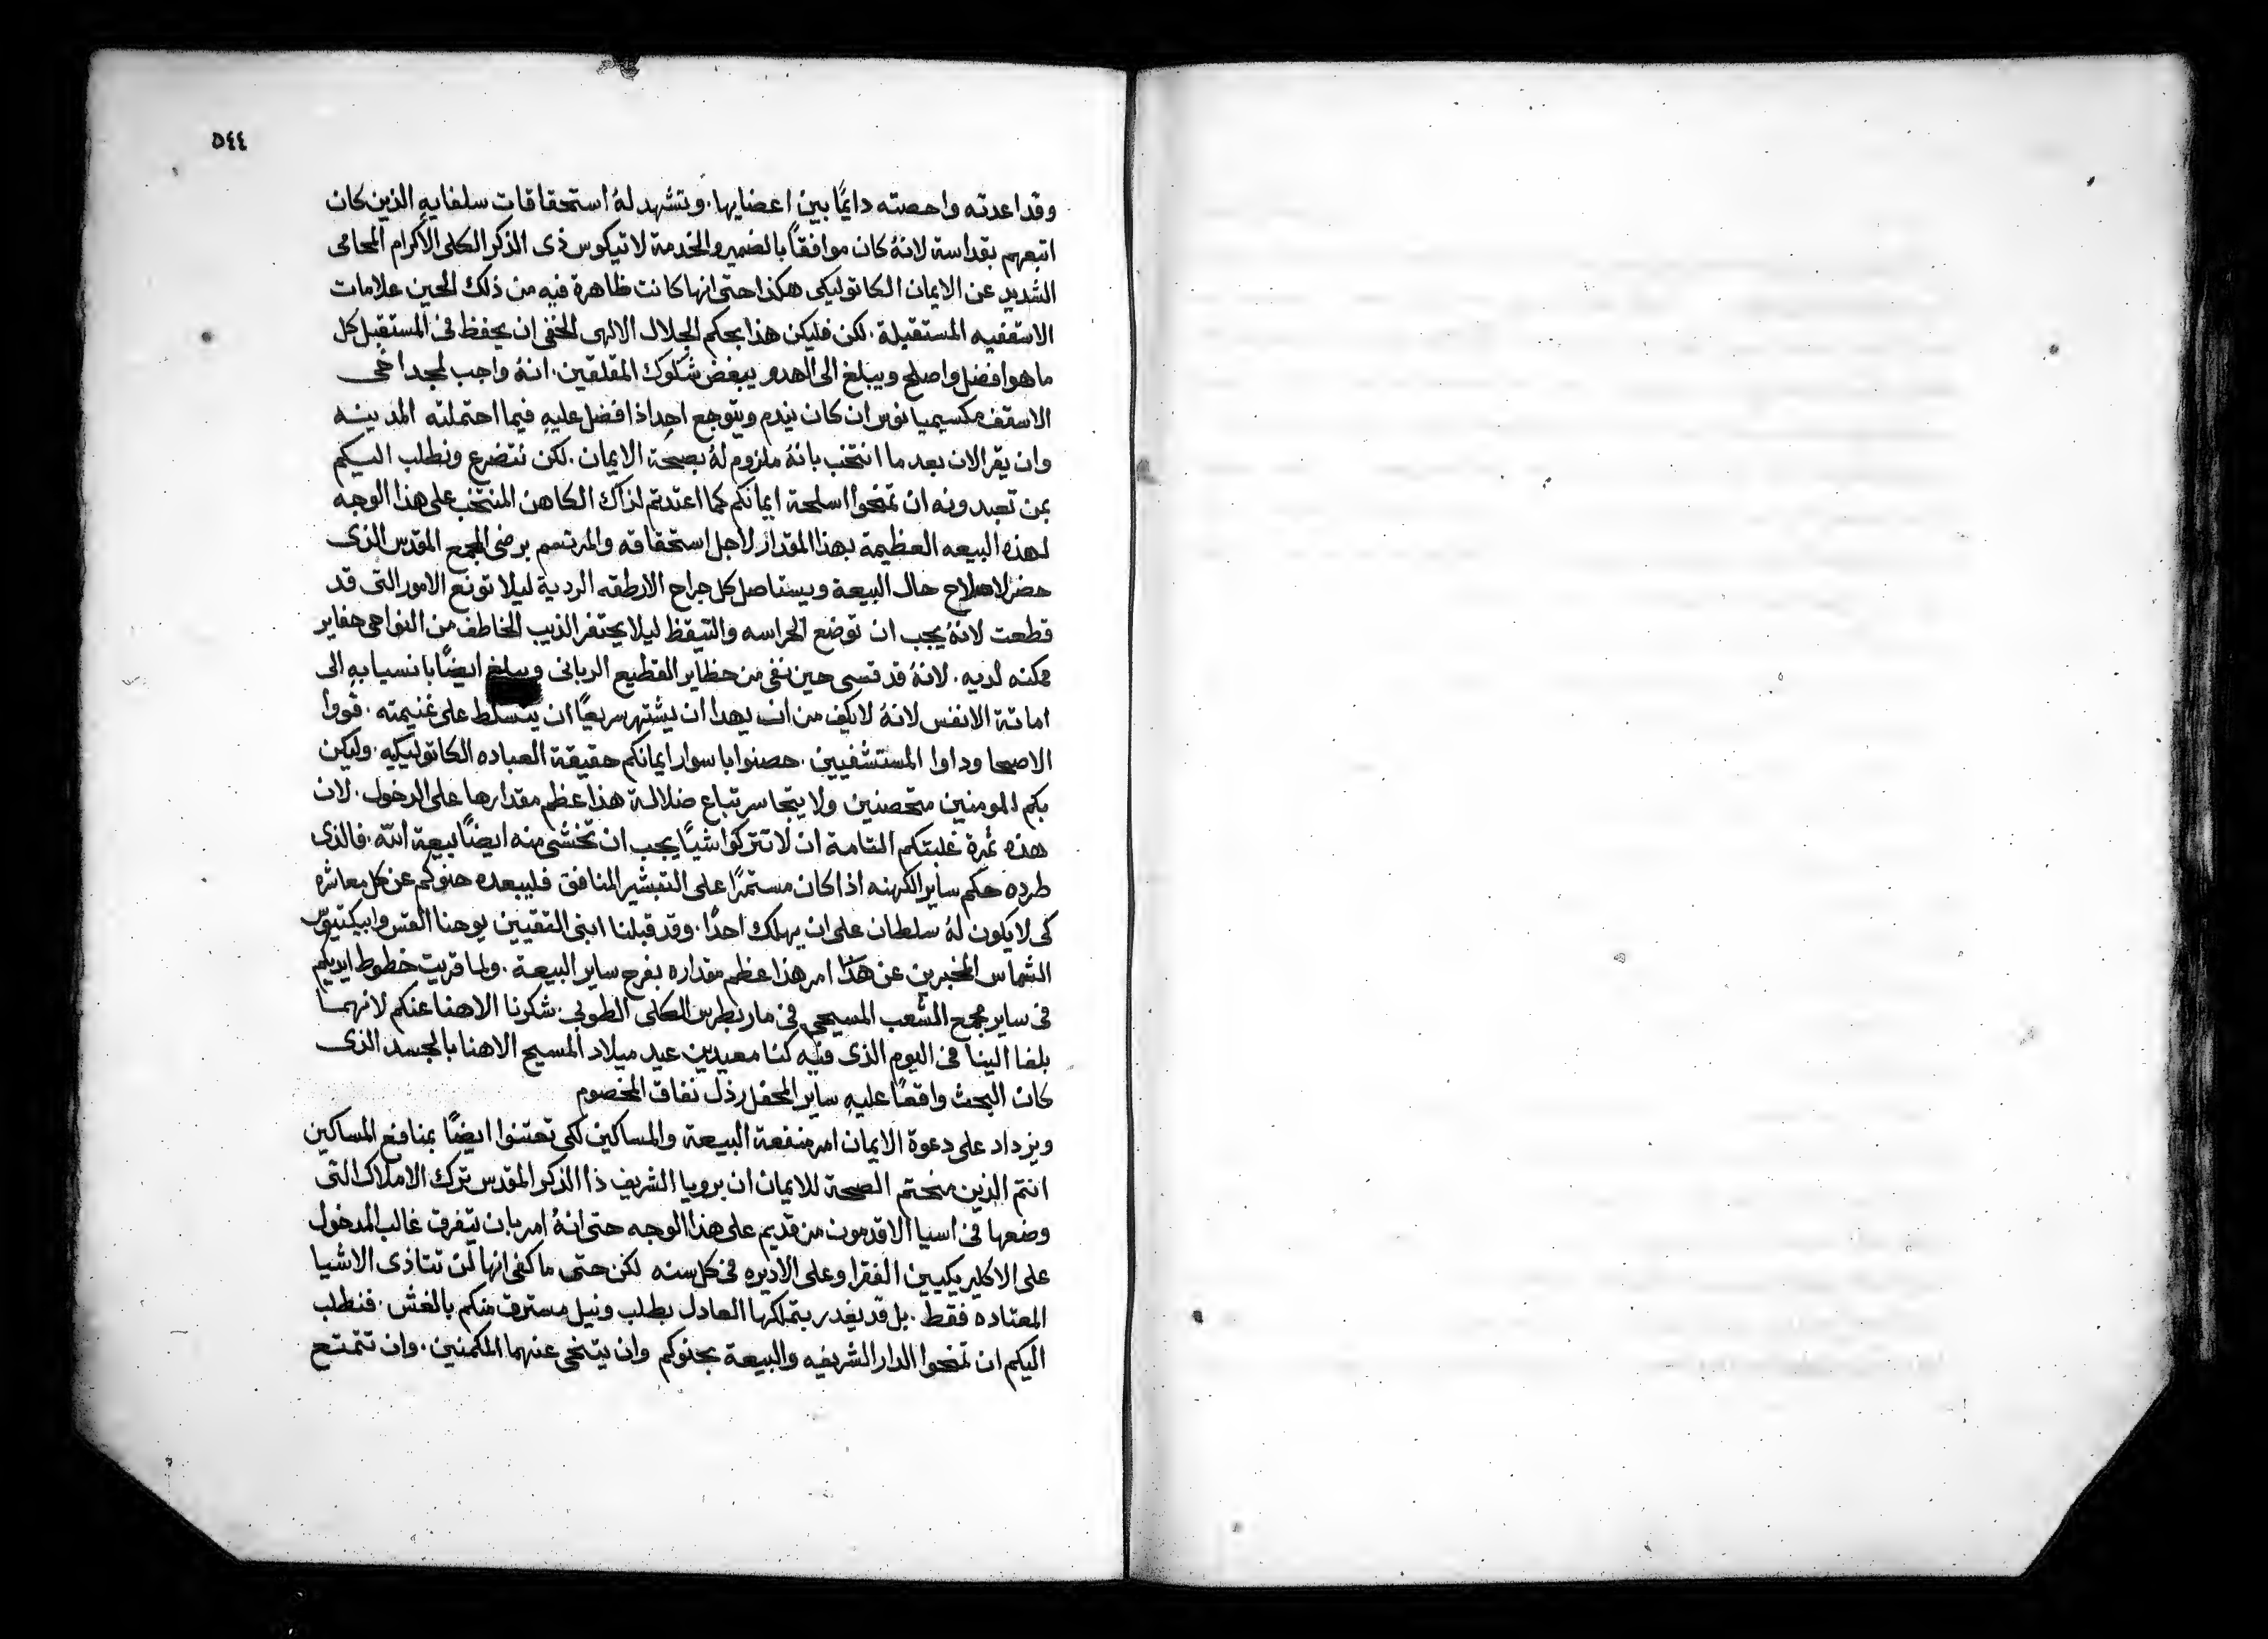 ٥٤٤
وقد اعدته واحصته دايمًا بين اعضايها. وتشهد لهُ استحقاقات سلفايهِ الذين كان
اتبعهم بقداسة لانهُ كان موافقًا بالضمير والخدمة لاتيكوس ذى الذكر الكلى الاكرام المحامى
الشديد عن الايمان الكاتوليكى هكذا حتى انها كانت ظاهرة فيه من ذلك الحين علامات
الاسقفيه المستقبلة. لكن فليكن هذا بحكم الجلال الالهى الخفى ان يحفظ فى المستقبل كل
ما هو افضل واصلح ويبلغ الى الهدو ببغض شكوك المقلقين. انهُ واجب لمجد اخى
الاسقف مكسيميانوس ان كان يندم ويتوجع احد اذ افضل عليهِ فيما احتملته المدينه
وان يقر الان بعد ما انتخب بانهُ ملزوم لهُ بصحة الايمان. لكن نتضرع ونطلب اليكم
بمن تعبدونه ان تمنحوا اسلحة ايمانكم كما اعتدتم لذاك الكاهن المنتخب على هذا الوجه
لهذه البيعه العظيمة بهذا المقدار لاجل استحقاقه والمرتسم برضى المجمع المقدس الذى
حضر لاصلاح حال البيعة ويستاصل كل جراح الارطقه الردية ليلا تونع الامور التى قد
قطعت لانهُ يجب ان توضع الحراسه والتيقظ ليلا يحتفر الذيب الخاطف من النواحى حفاير
ممكنه لديه. لانهُ قد قسى حين نفى من حظاير القطيع الربانى ويبلغ ايضًا بانسيابهِ الى
اماتة الانفس لانهُ لا يكف من ان يهدا ان يشتهر سريعًا ان يتسلط على غنيمته. قووا
الاصحا وداوا المستشفيين. حصنوا باسوار ايمانكم حقيقة العباده الكاتوليكيه. وليكن
بكم المومنين متحصنين ولا يتجاسر تباع ضلالة هذا عظم مقدارها على الدخول. لان
هذه ثمرة غلبتكم التامة ان لا تتركوا شيًا يجب ان تخشى منه ايضًا بيعة الله. فالذى
طرده حكم ساير الكهنه اذا كان مستمرًا على التبشير المنافق فليبعده حنوكم عن كل معاشره
كى لا يكون لهُ سلطان على ان يهلك احدًا. وقد قبلنا ابنى التقيين يوحنا القس وابيكتيوس
الشماس المخبرين عن هذا امر هذا عظم مقداره بفرح ساير البيعة. ولما قريت خطوط ايديكم
فى ساير مجمع الشعب المسيحى فى مار بطرس الكلى الطوبى. شكرنا الاهنا عنكم لانهما
بلغا الينا فى اليوم الذى فيه كنا معيدين عيد ميلاد المسيح الاهنا بالجسد الذى
كان البحث واقعًا عليهِ ساير المحفل رذل نفاق الخصوم
ويزداد على دعوة الايمان امر منفعة البيعة والمساكين لكى تعتنوا ايضًا بمنافع المساكين
انتم الذين منحتم الصحة للايمان ان برويا الشريف ذا الذكر المقدس ترك الاملاك التى
وضعها فى اسيا الاقدمون من قديم على هذا الوجه حتى انهُ امر بان يتفرق غالب المدخول
على الاكليريكيين الفقرا وعلى الأديره فى كل سنه لكن حتى ما كفى انها لن تتاذى الاشيا
المعتاده فقط. بل قد يغدر بتملكها العادل بطلب ونيل مسترق منكم بالغش. فنطلب
اليكم ان تمنحوا الدار الشريفه والبيعة بحنوكم وان يتنحى عنهما المكمنين. وان تتمتع